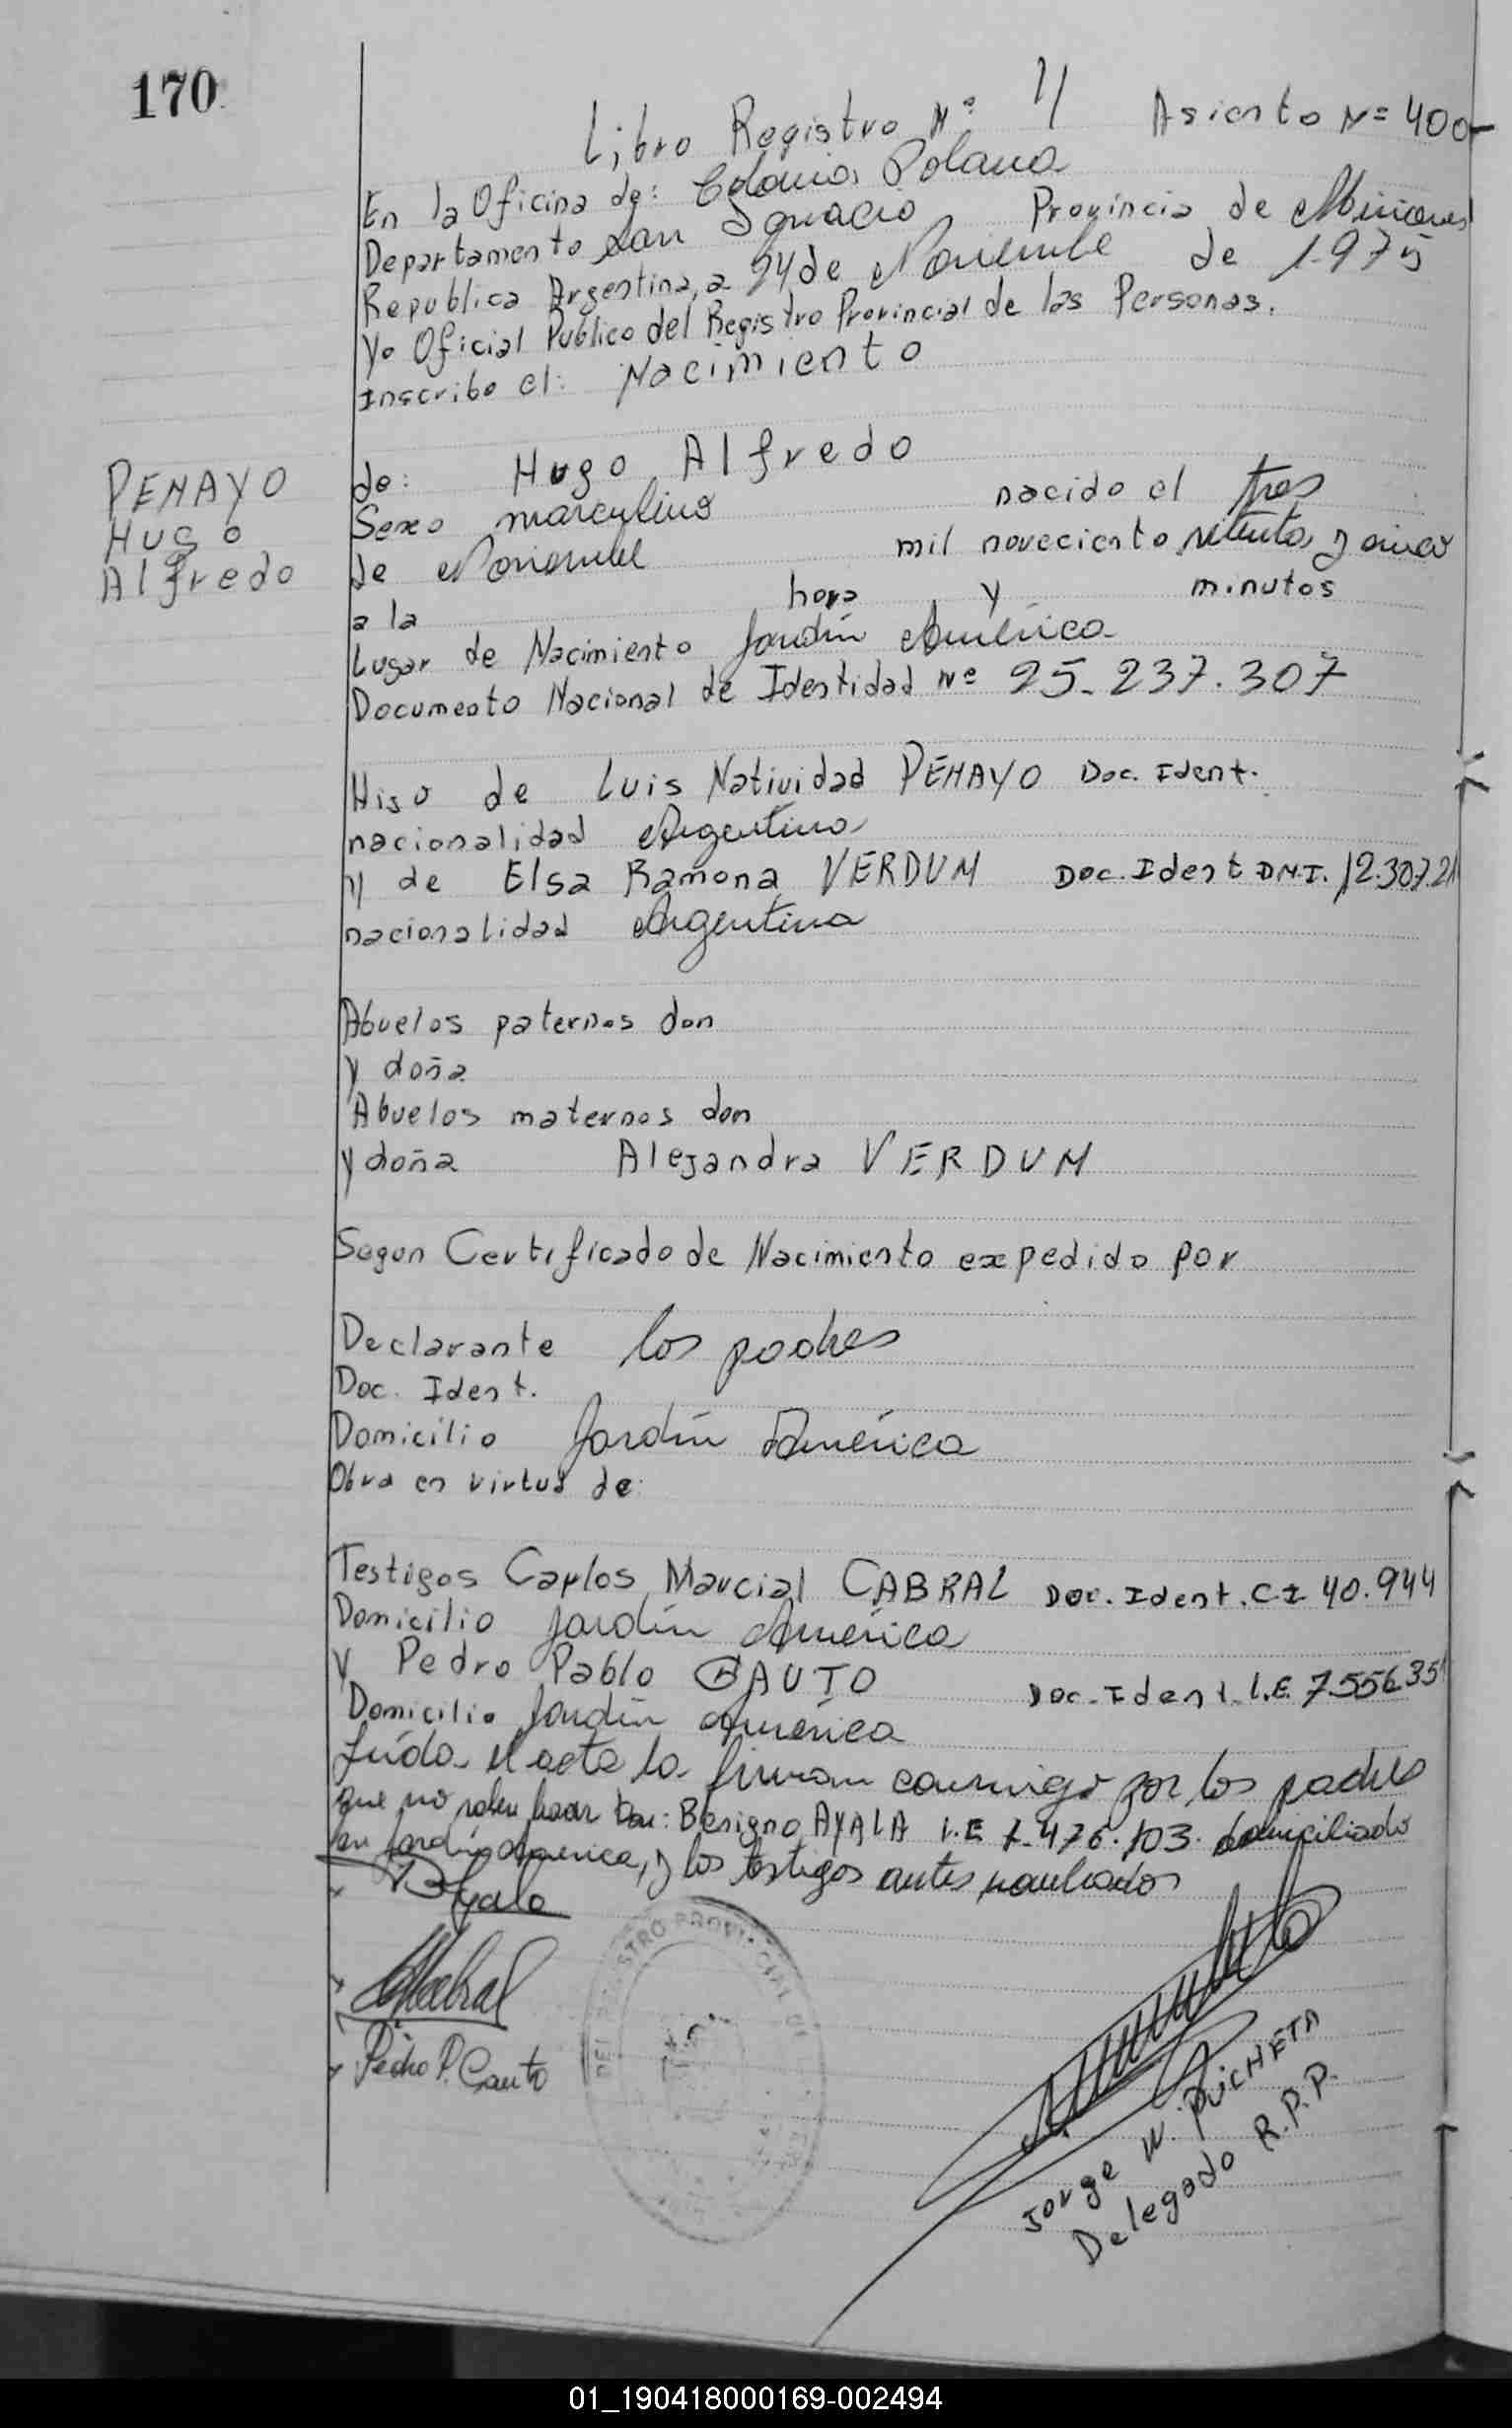 170
Libro Registro Nº 11 Asiento Nº 400-
En la Oficina de: Colonia Polana
Departamento San Ignacio Provincia de Misiones
Republica Argentina, a 24 de Noviembre de 1.975
Yo Oficial Publico del Registro Provincial de las Personas.
Inscribo el: Nacimiento
de: Hugo Alfredo
PENAYO
HUGO
Alfredo
Sexo masculino nacido el tres
de Noviembre mil noveciento setenta y cinco
a la hora y minutos
Lugar de Nacimiento Jardín América
Documento Nacional de Identidad Nº 25.237.307
Hijo de Luis Natividad PENAYO Doc. Ident.
nacionalidad Argentino
y de Elsa Ramona VERDUM Doc. Ident D.N.I. 12.307.21
nacionalidad Argentina
Abuelos paternos don
y doña
Abuelos maternos don
y doña Alejandra VERDUM
Segun Certificado de Nacimiento expedido por
Declarante los padres
Doc. Ident.
Domicilio Jardín América
Obra en virtud de:
Testigos Carlos Marcial CABRAL Doc. Ident. C.I 40.944
Domicilio Jardín América
y Pedro Pablo GAUTO Doc. Ident. L.E. 7.556.351
Domicilio Jardín América
Leída el acta la firman conmigo por los padres
que no saben hacer Don: Benigno AYALA L.E 7.476.103. domiciliado
en Jardín América, y los testigos antes nombrados
BAyala
CMCabral
Pedro P. Gauto
DEL REGISTRO PROVINCIAL DE
Jorge W. PUCHETA
Delegado R.P.P.
01_190418000169-002494